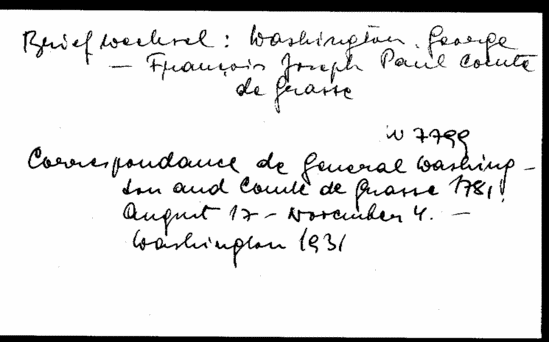 Briefwechsel: Washington, George
— François Joseph Paul Comte
de Grasse
W 7799
Correspondance de General Washing-
ton and Comte de Grasse 1781,
August 17 - November 4. —
Washington 1931